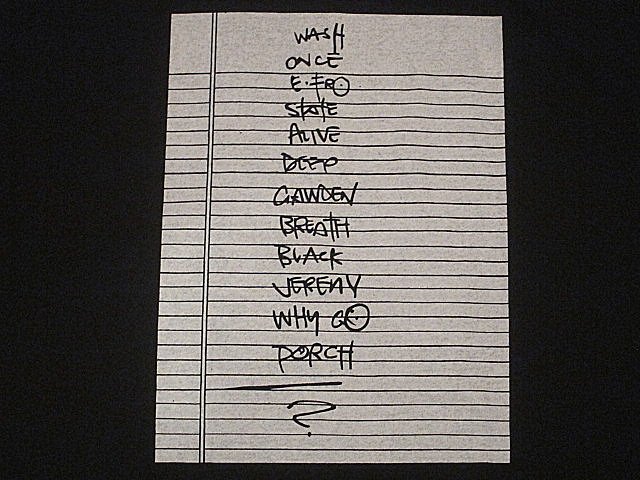 WASH
ONCE
E.FRO
STATE
ALIVE
DEEP
GAWDEN
BREATH
BLACK
JEREMY
WHY GO
PORCH
?